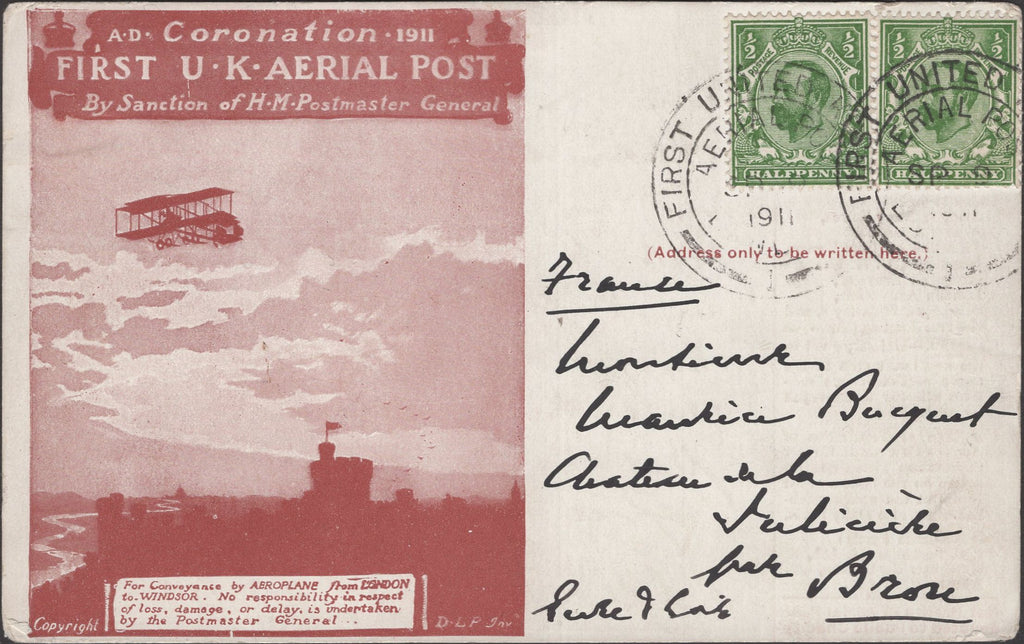 A·D· Coronation · 1911
FIRST U·K·AERIAL POST
By Sanction of H·M·Postmaster General
For Conveyance by AEROPLANE from LONDON
to WINDSOR. No responsibility in respect
of loss, damage, or delay, is undertaken
by the Postmaster General...
Copyright
D·L·P Inv
½ ½
POSTAGE REVENUE
HALFPENNY
½ ½
HALFPENNY
FIRST UNITED
AERIAL
1911
FIRST UNITED
AERIAL PO
(Address only to be written here.)
France
Monsieur
Maurice Bucquet
Chateau de la
par
Bron